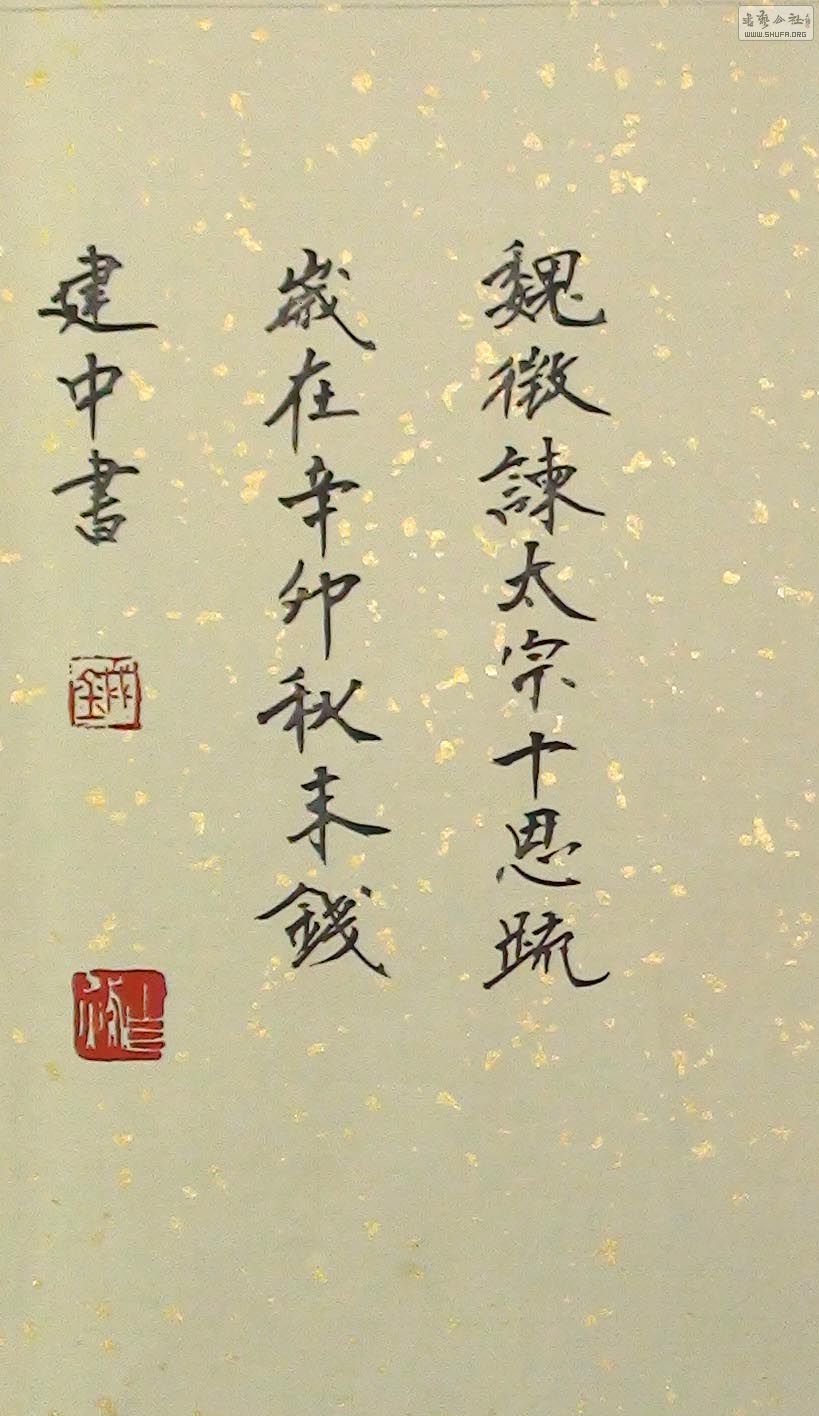 魏徵諫太宗十思疏
歲在辛卯秋末錢
建中書
书艺公社
WWW.SHUFA.ORG